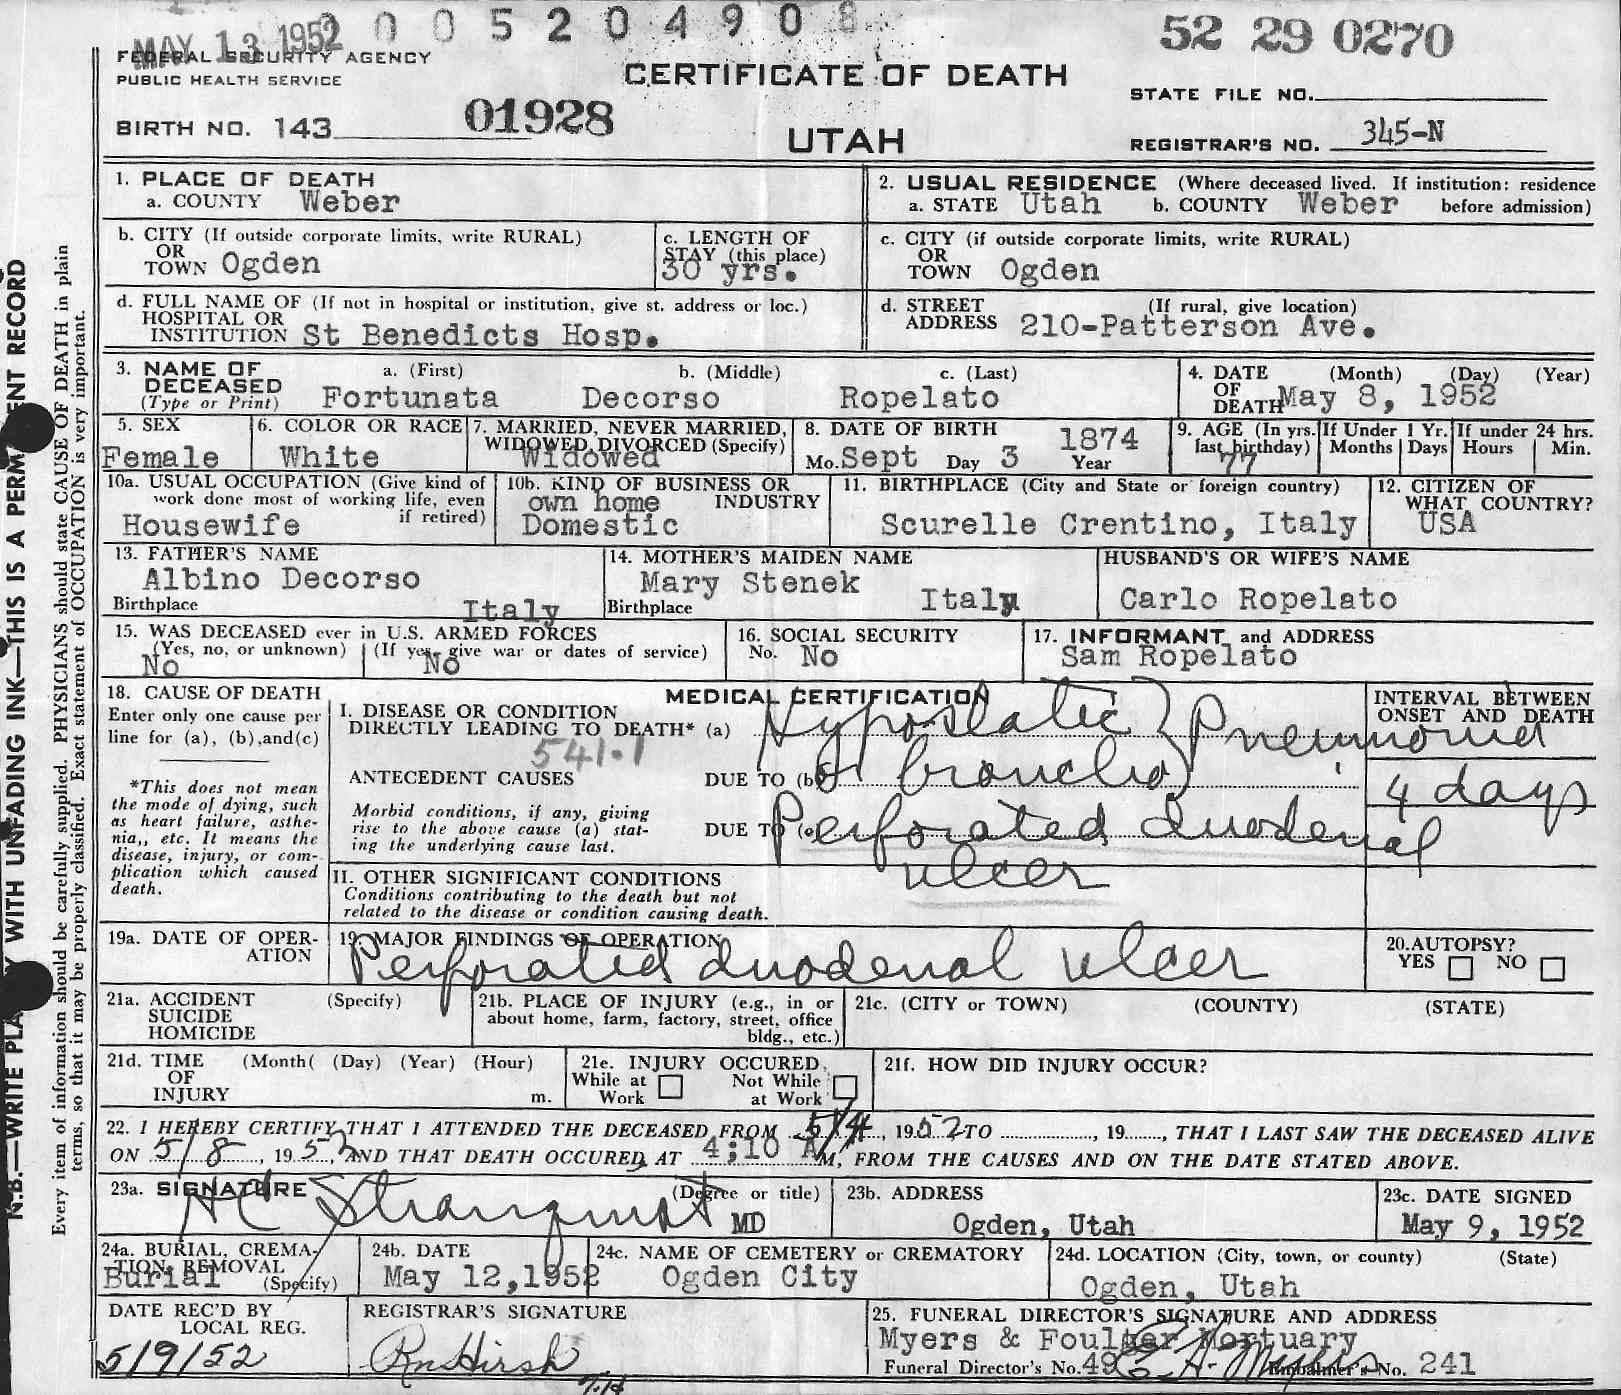 MAY 13 1952 0 0 5 2 0 4 9 0 8
52 29 0270
FEDERAL SECURITY AGENCY
PUBLIC HEALTH SERVICE
CERTIFICATE OF DEATH
STATE FILE NO.
BIRTH NO. 143 01928
UTAH
REGISTRAR'S NO. 345-N
N.B.—WRITE PLAINLY WITH UNFADING INK—THIS IS A PERMANENT RECORD
Every item of information should be carefully supplied. PHYSICIANS should state CAUSE OF DEATH in plain
terms, so that it may be properly classified. Exact statement of OCCUPATION is very important.
1. PLACE OF DEATH
a. COUNTY Weber
2. USUAL RESIDENCE (Where deceased lived. If institution: residence
a. STATE Utah b. COUNTY Weber before admission)
b. CITY (If outside corporate limits, write RURAL)
OR
TOWN Ogden
c. LENGTH OF
STAY (this place)
30 yrs.
c. CITY (if outside corporate limits, write RURAL)
OR
TOWN Ogden
d. FULL NAME OF (If not in hospital or institution, give st. address or loc.)
HOSPITAL OR
INSTITUTION St Benedicts Hosp.
d. STREET (If rural, give location)
ADDRESS 210-Patterson Ave.
3. NAME OF a. (First) b. (Middle) c. (Last)
DECEASED
(Type or Print) Fortunata Decorso Ropelato
4. DATE (Month) (Day) (Year)
OF
DEATH May 8, 1952
5. SEX
Female
6. COLOR OR RACE
White
7. MARRIED, NEVER MARRIED,
WIDOWED, DIVORCED (Specify)
Widowed
8. DATE OF BIRTH 1874
Mo. Sept Day 3 Year
9. AGE (In yrs. last birthday)
77
If Under 1 Yr.
Months Days
If under 24 hrs.
Hours Min.
10a. USUAL OCCUPATION (Give kind of
work done most of working life, even
if retired)
Housewife
10b. KIND OF BUSINESS OR
own home INDUSTRY
Domestic
11. BIRTHPLACE (City and State or foreign country)
Scurelle Crentino, Italy
12. CITIZEN OF
WHAT COUNTRY?
USA
13. FATHER'S NAME
Albino Decorso
Birthplace Italy
14. MOTHER'S MAIDEN NAME
Mary Stenek
Birthplace Italy
HUSBAND'S OR WIFE'S NAME
Carlo Ropelato
15. WAS DECEASED ever in U.S. ARMED FORCES
(Yes, no, or unknown) (If yes, give war or dates of service)
No No
16. SOCIAL SECURITY
No. No
17. INFORMANT and ADDRESS
Sam Ropelato
18. CAUSE OF DEATH
Enter only one cause per
line for (a), (b), and (c)
*This does not mean
the mode of dying, such
as heart failure, asthe-
nia,, etc. It means the
disease, injury, or com-
plication which caused
death.
MEDICAL CERTIFICATION
I. DISEASE OR CONDITION
DIRECTLY LEADING TO DEATH* (a) Hypostatic Pneumonia
541.1
ANTECEDENT CAUSES DUE TO (b) & broncho
Morbid conditions, if any, giving
rise to the above cause (a) stat-
ing the underlying cause last.
DUE TO (c) Perforated duodenal
ulcer
INTERVAL BETWEEN
ONSET AND DEATH
4 days
II. OTHER SIGNIFICANT CONDITIONS
Conditions contributing to the death but not
related to the disease or condition causing death.
19a. DATE OF OPER-
ATION
19. MAJOR FINDINGS OF OPERATION
Perforated duodenal ulcer
20. AUTOPSY?
YES NO
21a. ACCIDENT (Specify)
SUICIDE
HOMICIDE
21b. PLACE OF INJURY (e.g., in or
about home, farm, factory, street, office
bldg., etc.)
21c. (CITY or TOWN) (COUNTY) (STATE)
21d. TIME (Month( (Day) (Year) (Hour)
OF
INJURY m.
21e. INJURY OCCURED
While at Work Not While at Work
21f. HOW DID INJURY OCCUR?
22. I HEREBY CERTIFY THAT I ATTENDED THE DECEASED FROM 5/4, 1952 TO , 19 , THAT I LAST SAW THE DECEASED ALIVE
ON 5/8, 1952, AND THAT DEATH OCCURED AT 4;10 AM, FROM THE CAUSES AND ON THE DATE STATED ABOVE.
23a. SIGNATURE (Degree or title)
HC Stranquist MD
23b. ADDRESS
Ogden, Utah
23c. DATE SIGNED
May 9, 1952
24a. BURIAL, CREMA-
TION, REMOVAL
Burial (Specify)
24b. DATE
May 12,1952
24c. NAME OF CEMETERY or CREMATORY
Ogden City
24d. LOCATION (City, town, or county) (State)
Ogden, Utah
DATE REC'D BY
LOCAL REG.
5/9/52
REGISTRAR'S SIGNATURE
25. FUNERAL DIRECTOR'S SIGNATURE AND ADDRESS
Myers & Foulger Mortuary
Funeral Director's No. 49 Embalmer's No. 241